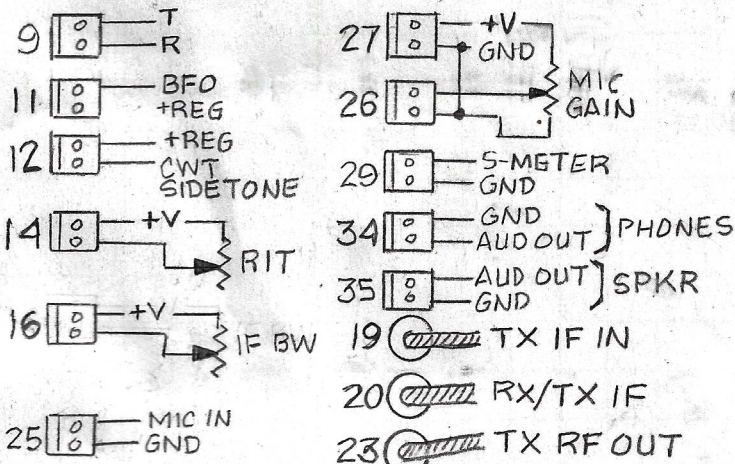 9 T
R
11 BFO
+REG
12 +REG
CWT
SIDETONE
14 +V
RIT
16 +V
IF BW
25 MIC IN
GND
27 +V
GND
26 MIC
GAIN
29 S-METER
GND
34 GND
AUD OUT } PHONES
35 AUD OUT } SPKR
GND
19 TX IF IN
20 RX/TX IF
23 TX RF OUT